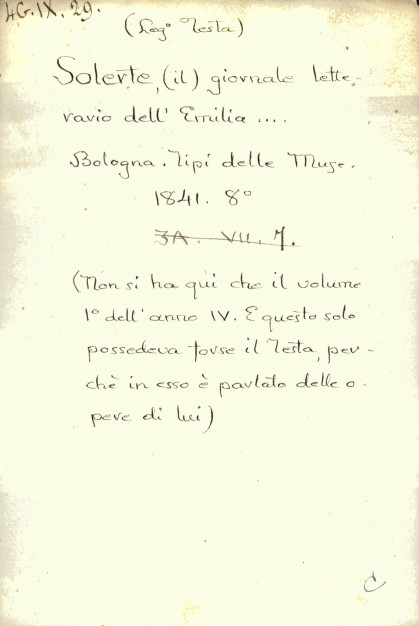 4G.IX.29.
(Leg.º Testa)
Solerte, (il) giornale lette-
rario dell' Emilia ....
Bologna. Tipi delle Muse.
1841. 8º
3A. VII. 7.
(Non si ha qui che il volume
1º dell'anno IV. E questo solo
possedeva forse il Testa, per-
chè in esso è parlato delle o-
pere di lui)
C